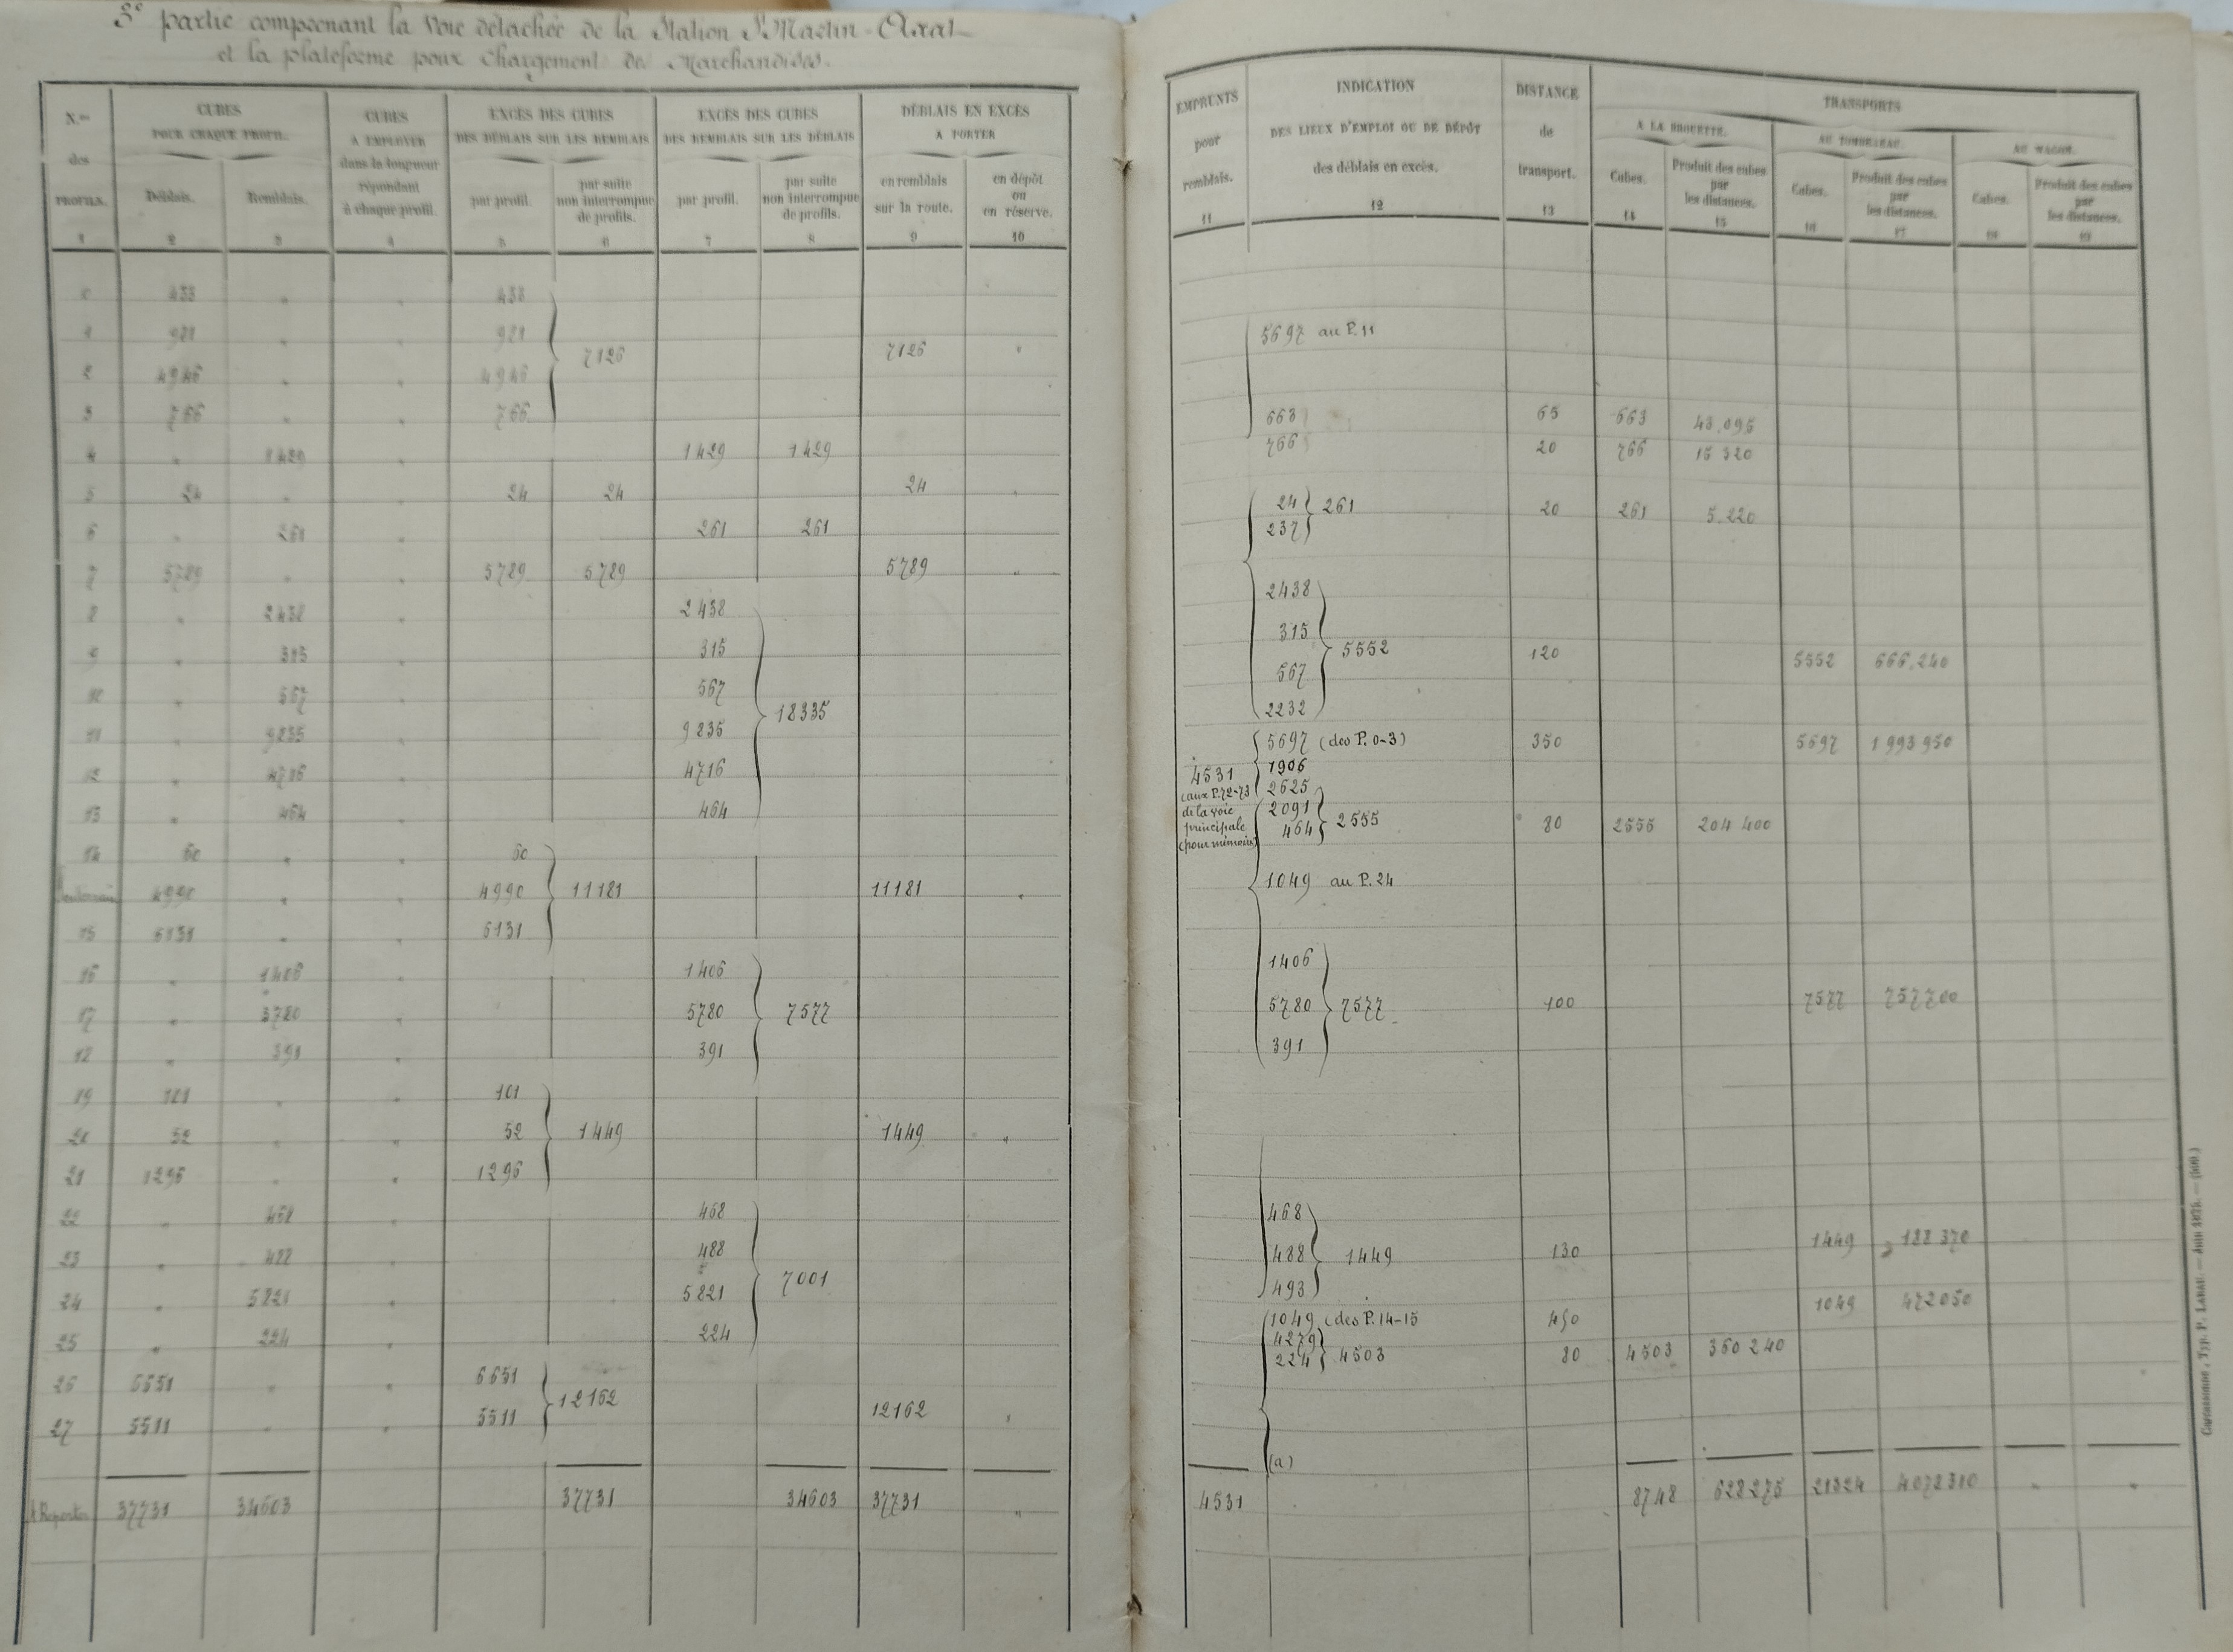 3e partie comprenant la Voie détachée de la Station St Martin-Axat
et la plateforme pour Chargement de Marchandises.
N.os des PROFILS. 1
CUBES POUR CHAQUE PROFIL.
Déblais. 2
Remblais. 3
CUBES A EMPLOYER dans la longueur répondant à chaque profil. 4
EXCÈS DES CUBES DES DÉBLAIS SUR LES REMBLAIS
par profil. 5
par suite non interrompue de profils. 6
EXCÈS DES CUBES DES REMBLAIS SUR LES DÉBLAIS
par profil. 7
par suite non interrompue de profils. 8
DÉBLAIS EN EXCÈS A PORTER
en remblais sur la route. 9
en dépôt ou en réserve. 10
0 433 " " 433
1 981 " " 981
7126 7126 "
2 4946 " " 4946
3 766 " " 766
4 " 1429 " 1429 1429
5 24 " " 24 24 24 "
6 " 261 " 261 261
7 5789 " " 5789 5789 5789 "
8 " 2438 " 2438
9 " 315 " 315
10 " 567 " 567
18335
11 " 9835 " 9835
12 " 4716 " 4716
13 " 464 " 464
14 60 " " 60
Souterrain 4990 " " 4990 11181 11181 "
15 6131 " " 6131
16 " 1406 " 1406
17 " 5780 " 5780 7577
18 " 391 " 391
19 101 " " 101
20 52 " " 52 1449 1449 "
21 1296 " " 1296
22 " 468 " 468
23 " 488 " 488
7001
24 " 5821 " 5821
25 " 224 " 224
26 6651 " " 6651
12162 12162 "
27 5511 " " 5511
A Reporter 37731 34603 37731 34603 37731 "
EMPRUNTS pour remblais. 11
INDICATION DES LIEUX D'EMPLOI OU DE DÉPÔT des déblais en excès. 12
DISTANCE de transport. 13
TRANSPORTS
A LA BROUETTE.
Cubes. 14
Produit des cubes par les distances. 15
AU TOMBEREAU.
Cubes. 16
Produit des cubes par les distances. 17
AU WAGON.
Cubes. 18
Produit des cubes par les distances. 19
5697 au P. 11
663 65 663 43.095
766 20 766 15 320
24
261 20 261 5.220
237
2438
315
5552 120 5552 666.240
567
2232
5697 (des P. 0-3) 350 5697 1 993 950
1906
4531
(aux P. 72-73
de la voie
principale
(pour mémoire)
2625
2091
2555 80 2555 204 400
464
1049 au P. 24
1406
5780 7577 100 7577 757700
391
468
488 1449 130 1449 188 370
493
1049 (des P. 14-15 450 1049 472050
4279
4503 80 4503 360 240
224
(a)
4531 8748 628275 21324 4078310 " "
Carcassonne, Typ. P. LABAU. — Juin 1875. — (600.)